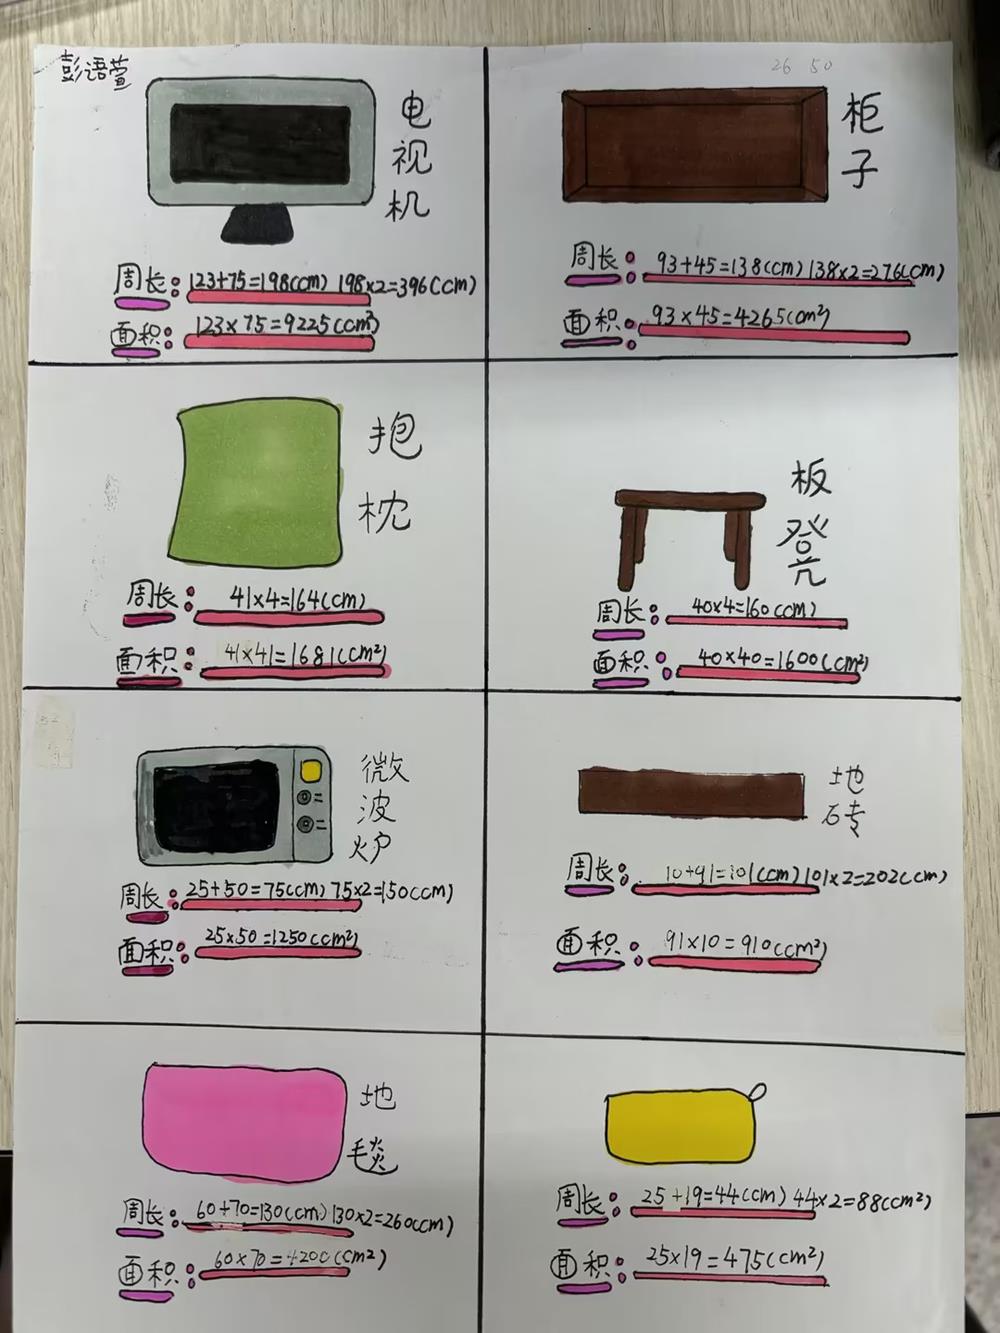 彭语萱
电视机
周长：123+75=198(cm) 198×2=396(cm)
面积：123×75=9225(cm²)
26 50
柜子
周长：93+45=138(cm) 138×2=276(cm)
面积：93×45=4265(cm²)
抱枕
周长：41×4=164(cm)
面积：41×41=1681(cm²)
板凳
周长：40×4=160(cm)
面积：40×40=1600(cm²)
微波炉
周长：25+50=75(cm) 75×2=150(cm)
面积：25×50=1250(cm²)
地砖
周长：10+91=101(cm) 101×2=202(cm)
面积：91×10=910(cm²)
地毯
周长：60+70=130(cm) 130×2=260(cm)
面积：60×70=4200(cm²)
周长：25+19=44(cm) 44×2=88(cm²)
面积：25×19=475(cm²)